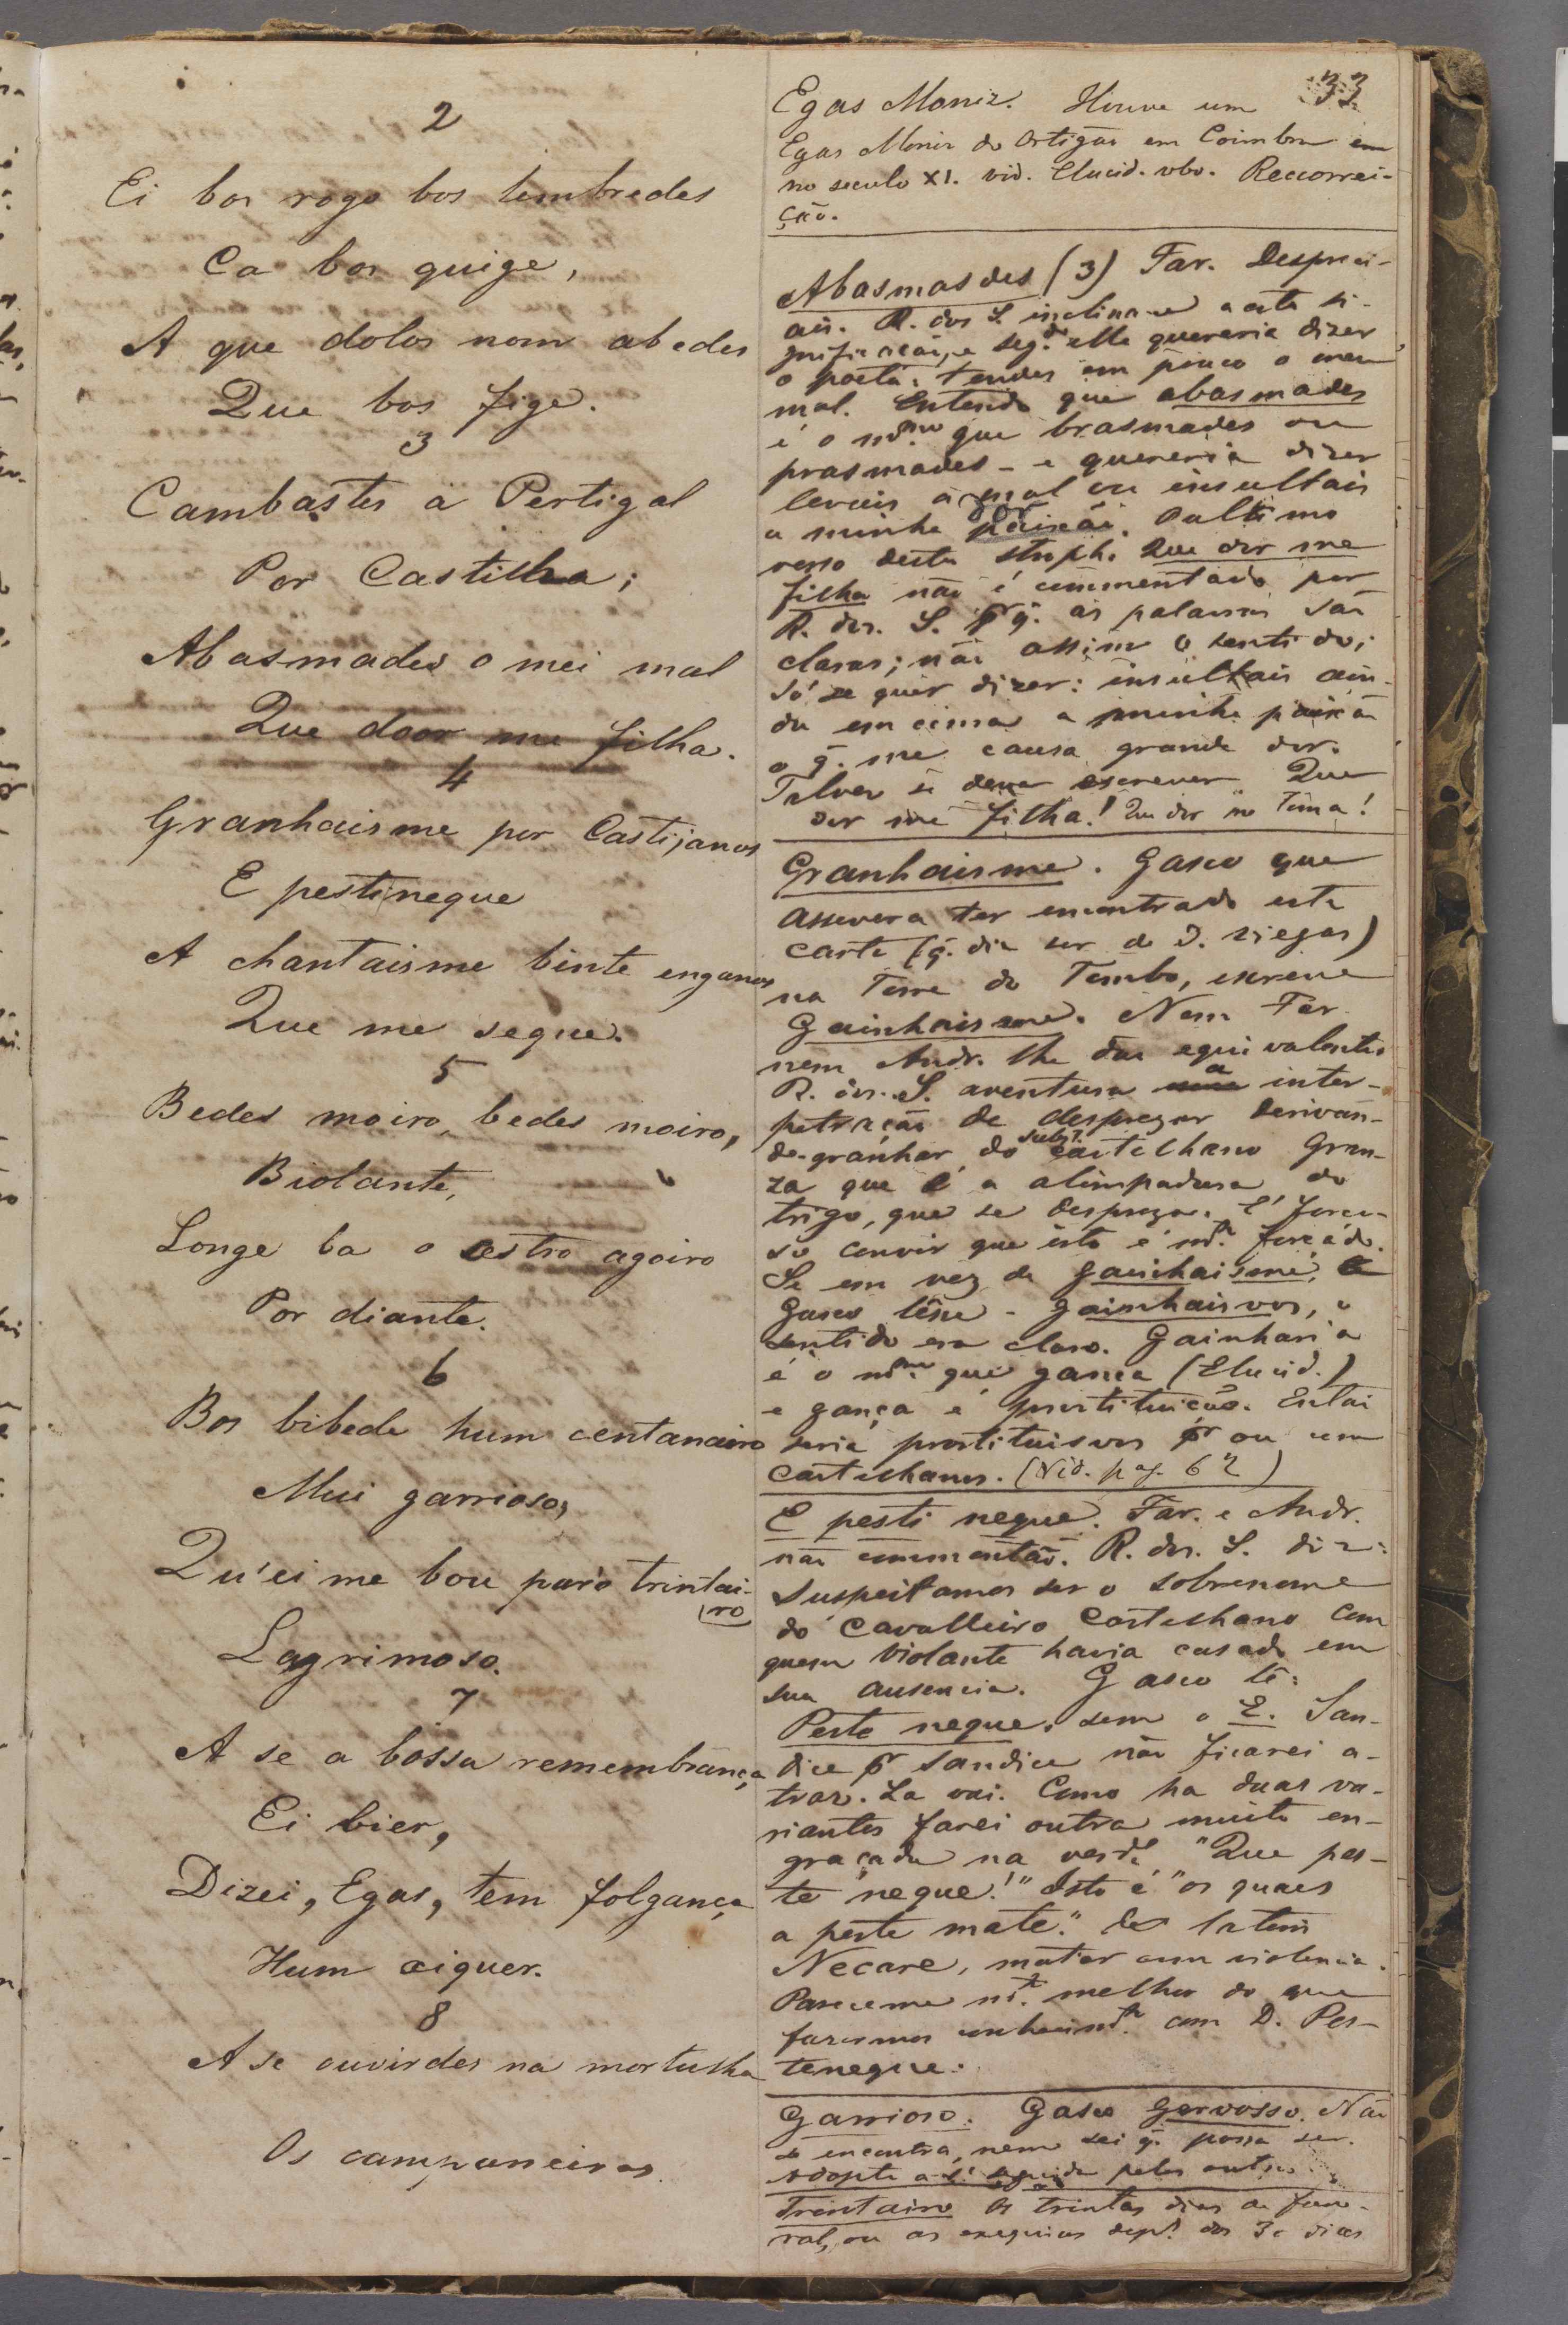 2
Ei bos rogo bos lembredes
Ca bos quige,
A que dolos nom abedes
Que bos fige.
3
Cambastes a Pertigal
Por Castilha;
Abasmades o mei mal
Que door me filha.
4
Granhaisme por Castijanos
E pestineque
A chantaisme binte enganos
Que me segue.
5
Bedes moiro, bedes moiro,
Biolante,
Longe ba o estro agoiro
Por diante.
6
Bos bibede hum centanairo
Mui garrioso,
Qu'ei me bou paro trintai-
ro
Lagrimoso.
7
A se a bossa remembrança
Ei bier,
Dizei, Egas, tem folgança
Hum aiquer.
8
A se ouvirdes na mortulha
Os campaneiros
33
Egas Moniz. Houve um
Egas Moniz do Ortigão em Coimbra em
no seculo XI. vid. Elucid. vbo. Reccorrei-
ção.
Abasmasdes (3) Far. Desprei-
ais. R. dos S. inclina-se a esta si-
gnificação, e seg.do elle quereria dizer
o poeta: tendes em pouco o meu
mal. Entendo que abasmades
é o m.mo que brasmades ou
prasmades - e quereria dizer
levais a mal ou insultais
a minha paixão. O ultimo
verso desta stroph. Que dor me
filha não é commentado por
R. dos. S. pr q. as palavras são
claras; não assim o sentido;
só se quer dizer: insultais ain-
da em cima a minha paixão
o q. me causa grande dor.
Talvez se deva escrever Que
dor me filha! Que dor me toma!
Granhaisme. Gasco que
assevera ter encontrado esta
carta (q. diz ser de D. Viegas)
na Torre do Tombo, escreve
Gainhaisme. Nem Far.
nem Andr. lhe dão equivalentes
R. dos. S. aventura a inter-
petração de desprezar derivan-
do-granhar, do subst. castelhano Gran-
za que é a alimpadura do
trigo, que se despreza. É força-
so convir que isto é m.to forcádo.
Se em vez de gainhaisme,
Gasco lêsse - gainhaisvos, o
sentido era claro. Gainharia
é o m.mo que gança (Elucid.)
e gança é prostituição. Então
seria prostituisvos pr ou com
castelhanos. (Vid. pag. 62)
E pesti neque. Far. e Andr.
não commentão. R. dos. S. diz:
suspeitamos ser o sobrenome
do Cavalleiro Castelhano com
quem Violante havia casado em
sua ausencia. Gasco lê:
Peste neque, sem o E. San-
dice pr sandice não ficarei a-
traz. La vai. Como ha duas va-
riantes farei outra muito en-
graçada na verd.e "Que pes-
te neque!" Isto é "os quaes
a peste mate." do latim
Necare, matar com violencia.
Pareceme m.to melhor do que
fazermos conhecim.to com D. Pes-
teneque.
Garrioso. Gasco Garvosso. Não
se encontra, nem sei q. possa ser.
adopto a seguida pelos outros.
Trintairo Os trintas dias do fune-
ral, ou as exequias dep.s dos 30 dias